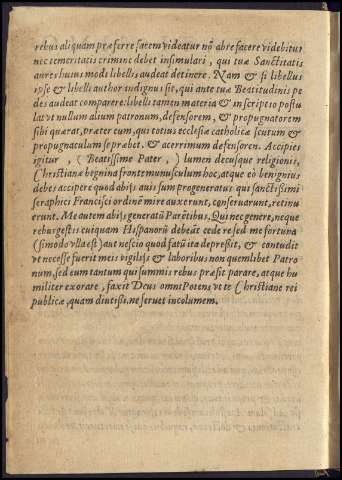 rebus aliquam præferre facem videatur nõ abre facere videbitur
nec temeritatis crimine debet insimulari, qui tuæ Sanctitatis
aures husus modi libellis audeat detinere. Nam & si libellus
ipse & libelli author indignus sit, qui ante tuæ Beatitudinis pe
des audeat comparere: libelli tamen materia & inscriptio postu
lat vt nullum alium patronum, defensorem, & propugnatorem
sibi quærat, præter eum, qui totius ecclesiæ catholicæ scutum &
propugnaculum se præbet. & acerrimum defensorem. Accipies
igitur, (Beatissime Pater,) lumen decusque religionis,
Christianæ benigna fronte munusculum hoc, atque eò benignius
debes accipere quod ab ijs auis sum progeneratus qui sanctissimi
seraphici Francisci ordinẽ mire auxerunt, conseruarunt, retinu
erunt. Me autem ab ijs generatũ Parẽtibus. Qui nec genere, neque
rebus gestis cuiquam Hispanorũ debeãt cede re sed me fortuna
(si modo vlla est) aut nescio quod fatũ ita depressit, & contudit
vt necesse fuerit meis vigilijs & laboribus non quemlibet Patro
num, sed eum tantum qui summis rebus præsit parare, atque hu
militer exorare, faxit Deus omni Potens vt te Christiane rei
publicæ, quam diutissi. ne seruet incolumem.